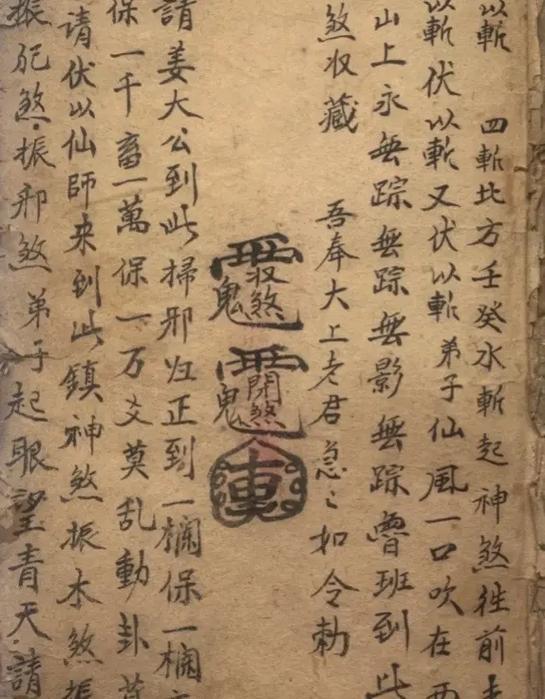 以斬 四斬比方壬癸水斬起神煞往前走
以斬伏以斬又伏以斬弟子仙風一口吹在西
山上永無踪無踪無影無踪魯班到此
煞收藏 吾奉大上老君急〻如令勅
收煞 鬼 開煞 鬼
請姜大公到此掃邪归正到一欄保一欄
保一千畜一萬保一万爻莫乱動卦莫
请伏以仙師来到此鎮神煞振木煞振
振死煞振邪煞弟子起眼望青天請